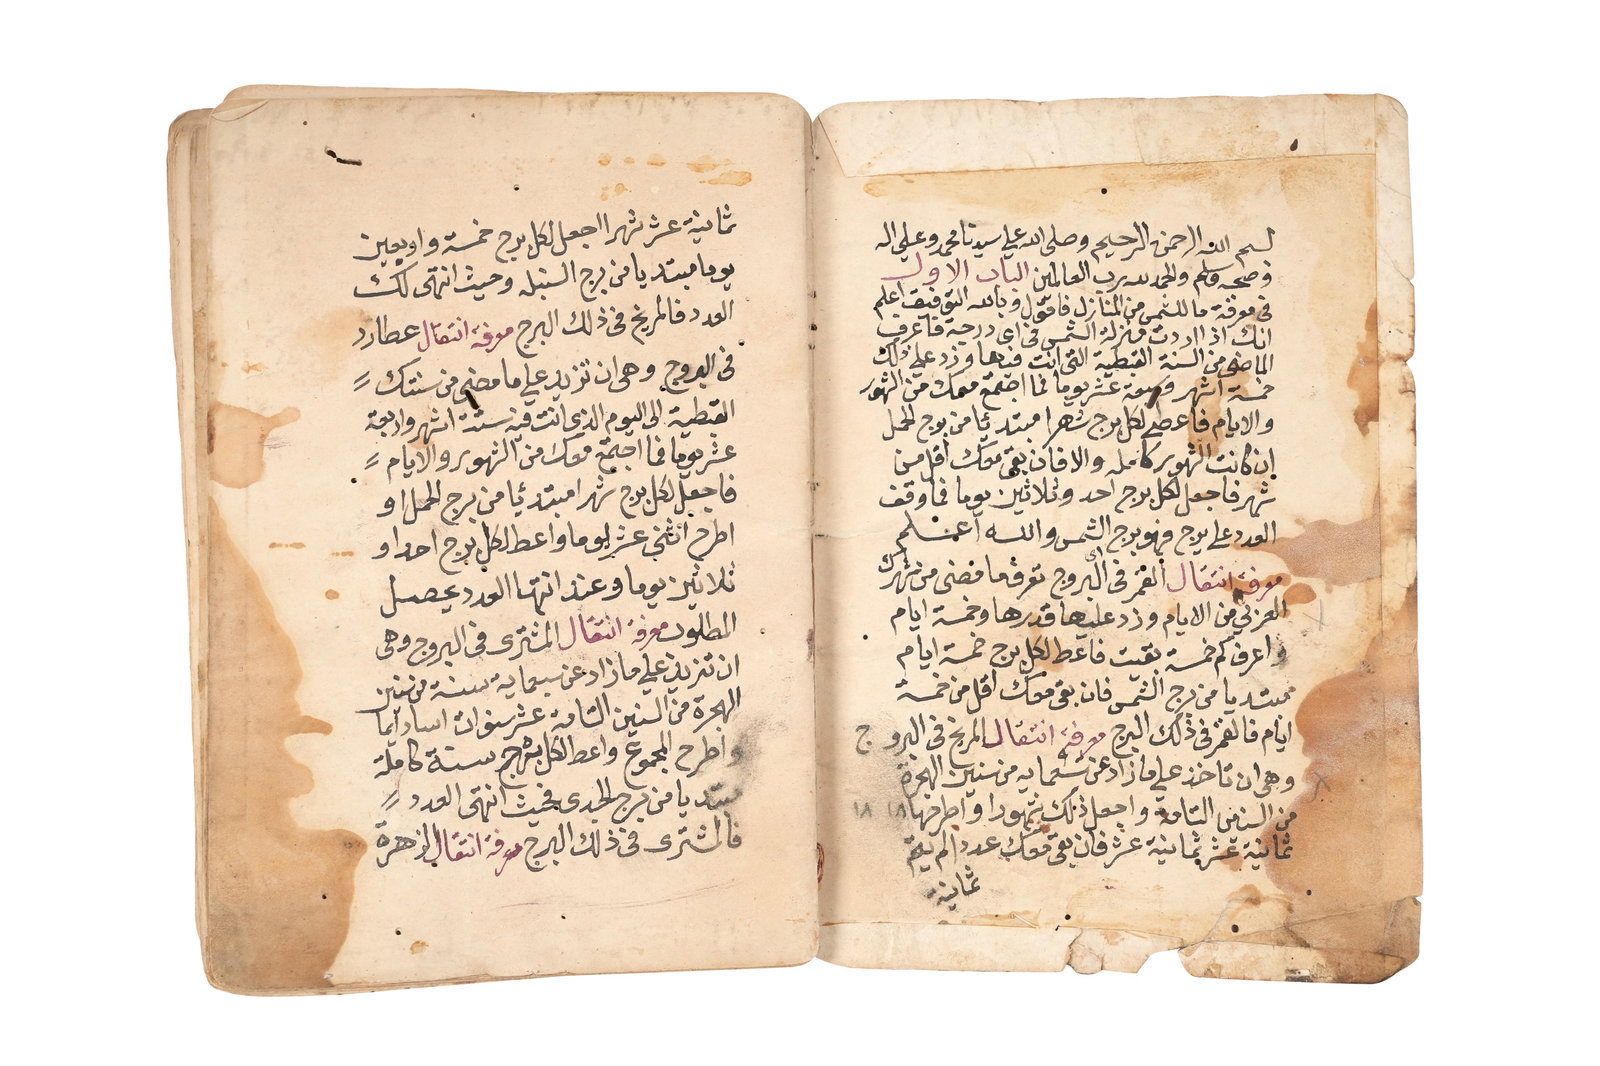 بسم الله الرحمن الرحيم وصلى الله علي سيدنا محمد وعلي اله
وصحبه وسلم والحمد لله رب العالمين الباب الاول
في معرفة ما للشمس من المنازل فاقول وبالله التوفيق اعلم
انك اذا اردت منزلة الشمس في اي درجة فاعرف
الماضي من السنة القبطية التي انت فيها وزد علي ذلك
خمسة اشهر وسبعة عشر يوما فما اجتمع معك من الشهور
والايام فاعطي لكل برج شهرا مبتديًا من برج الحمل
ان كانت الشهور كامله والا فان بقي معك اقل من
شهر فاجعل لكل برج احد وثلاثين يوما فما وقف
العدد علي برج فهو برج الشمس والله اعلم
معرفة انتقال القمر في البروج تعرف ما مضى من شهرك
العربي من الايام وزد عليها قدرها وخمسة ايام
واعرف كم خمسة بقيت فاعط لكل برج خمسة ايام
مبتديا من برج الشمس فان بقي معك اقل من خمسة
ايام فالقمر في ذلك البرج معرفة انتقال المريخ في البروج
وهي ان تاخذ علي ما زاد عن تسعماية من سنين الهجرة
من السنين التامة واجعل ذلك شهورا واطرحها ١٨ ١٨
ثمانية عشر ثمانية عشر فان بقي معك عدد المريخ
ثمانية
ثمانية عشر شهرا اجعل لكل برج خمسة واربعين
يوما مبتديا من برج السنبله وحيث انتهى لك
العدد فالمريخ في ذلك البرج معرفة انتقال عطارد
في البروج وهي ان تزيد علي ما مضى من سنتك
القبطية الى اليوم الذي انت فيه ستة اشهر واربعة
عشر يوما فما اجتمع معك من الشهور والايام
فاجعل لكل برج شهرا مبتديًا من برج الحمل او
اطرح اثني عشر يوما واعط لكل برج احد او
ثلاثين يوما وعند انتها العدد يحصل
المطلوب معرفة انتقال المشترى في البروج وهى
ان تزيد علي ما زاد عن سبعماية سنة من سنين
الهجرة من السنين التامة عشر سنوات
واطرح المجموع واعط لكل برج سنة كاملة
مبتديا من برج الجدى فحيث انتهى العدد
فالمشترى في ذلك البرج معرفة انتقال الزهرة